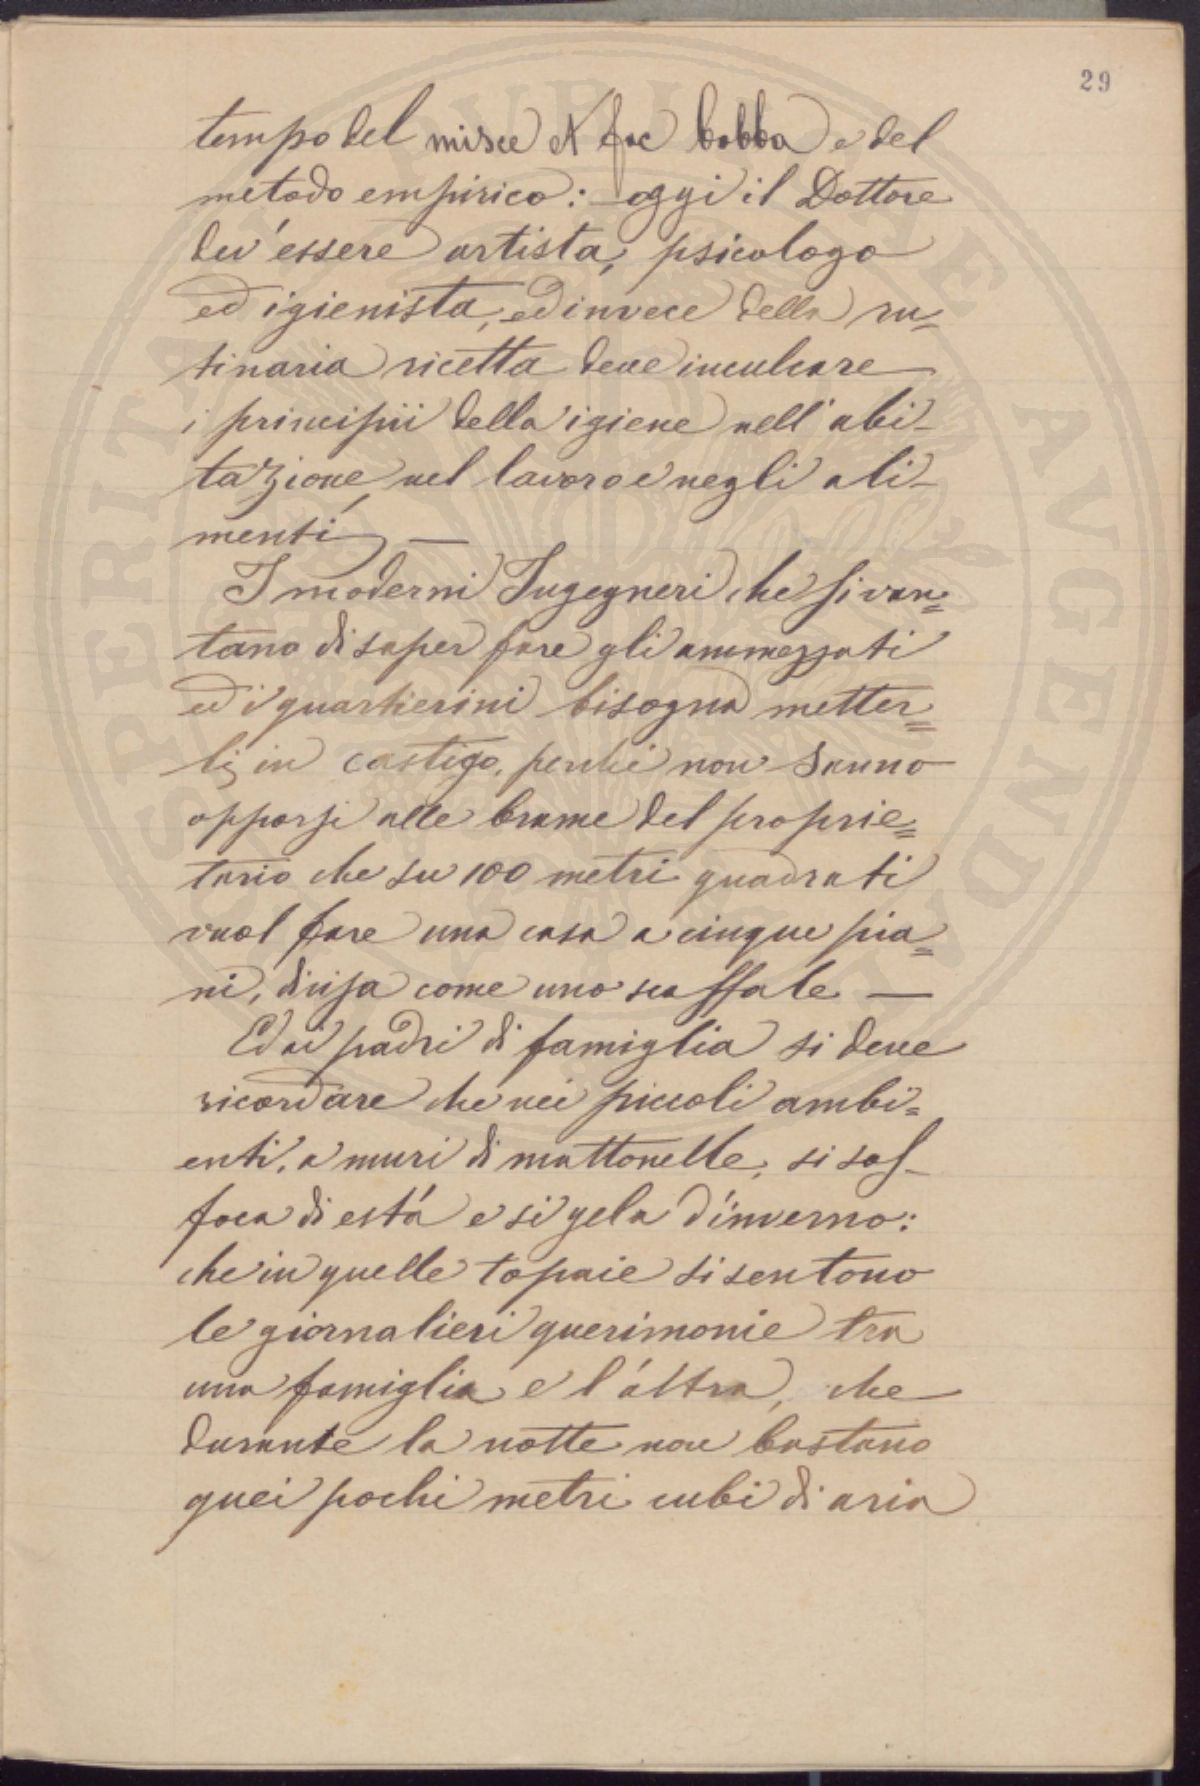 29
tempo del misce et fac bobba e del
metodo empirico: oggi il Dottore
dev'essere artista, psicologo
ed igienista, ed invece della ru-
tinaria ricetta deve inculcare
i principii della igiene nell'abi-
tazione, nel lavoro e negli ali-
menti —
I moderni Ingegneri che si van=
tano di saper fare gli ammezzati
ed i quartierini bisogna metter=
li in castigo, perchè non sanno
opporsi alle brame del proprie=
tario che su 100 metri quadrati
vuol fare una casa a cinque pia=
ni, divisa come uno scaffale —
Ed ai padri di famiglia si deve
ricordare che nei piccoli ambi=
enti, a muri di mattonelle, si sof-
foca di està e si gela d'inverno:
che in quelle topaie si sentono
le giornalieri querimonie tra
una famiglia e l'altra, che
durante la notte non bastano
quei pochi metri cubi di aria
PROSPERITATI PVBLICAE AVGENDAE